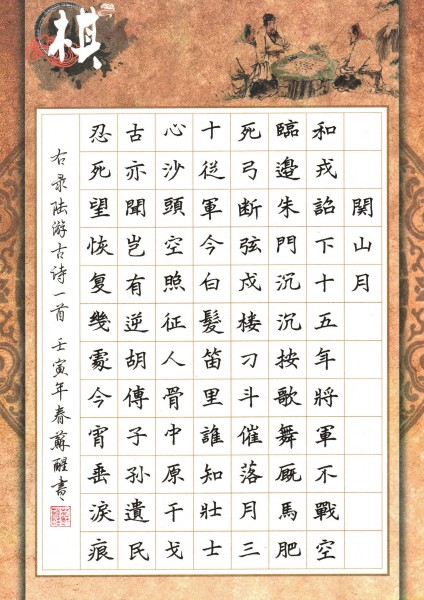 棋
関山月
和戎詔下十五年將軍不戰空
臨邊朱門沉沉按歌舞厩馬肥
死弓断弦戍楼刁斗催落月三
十從軍今白髮笛里誰知壯士
心沙頭空照征人骨中原干戈
古亦聞豈有逆胡傳子孫遺民
忍死望恢复幾處今宵垂淚痕
右录陆游古诗一首 壬寅年春蘇醒書